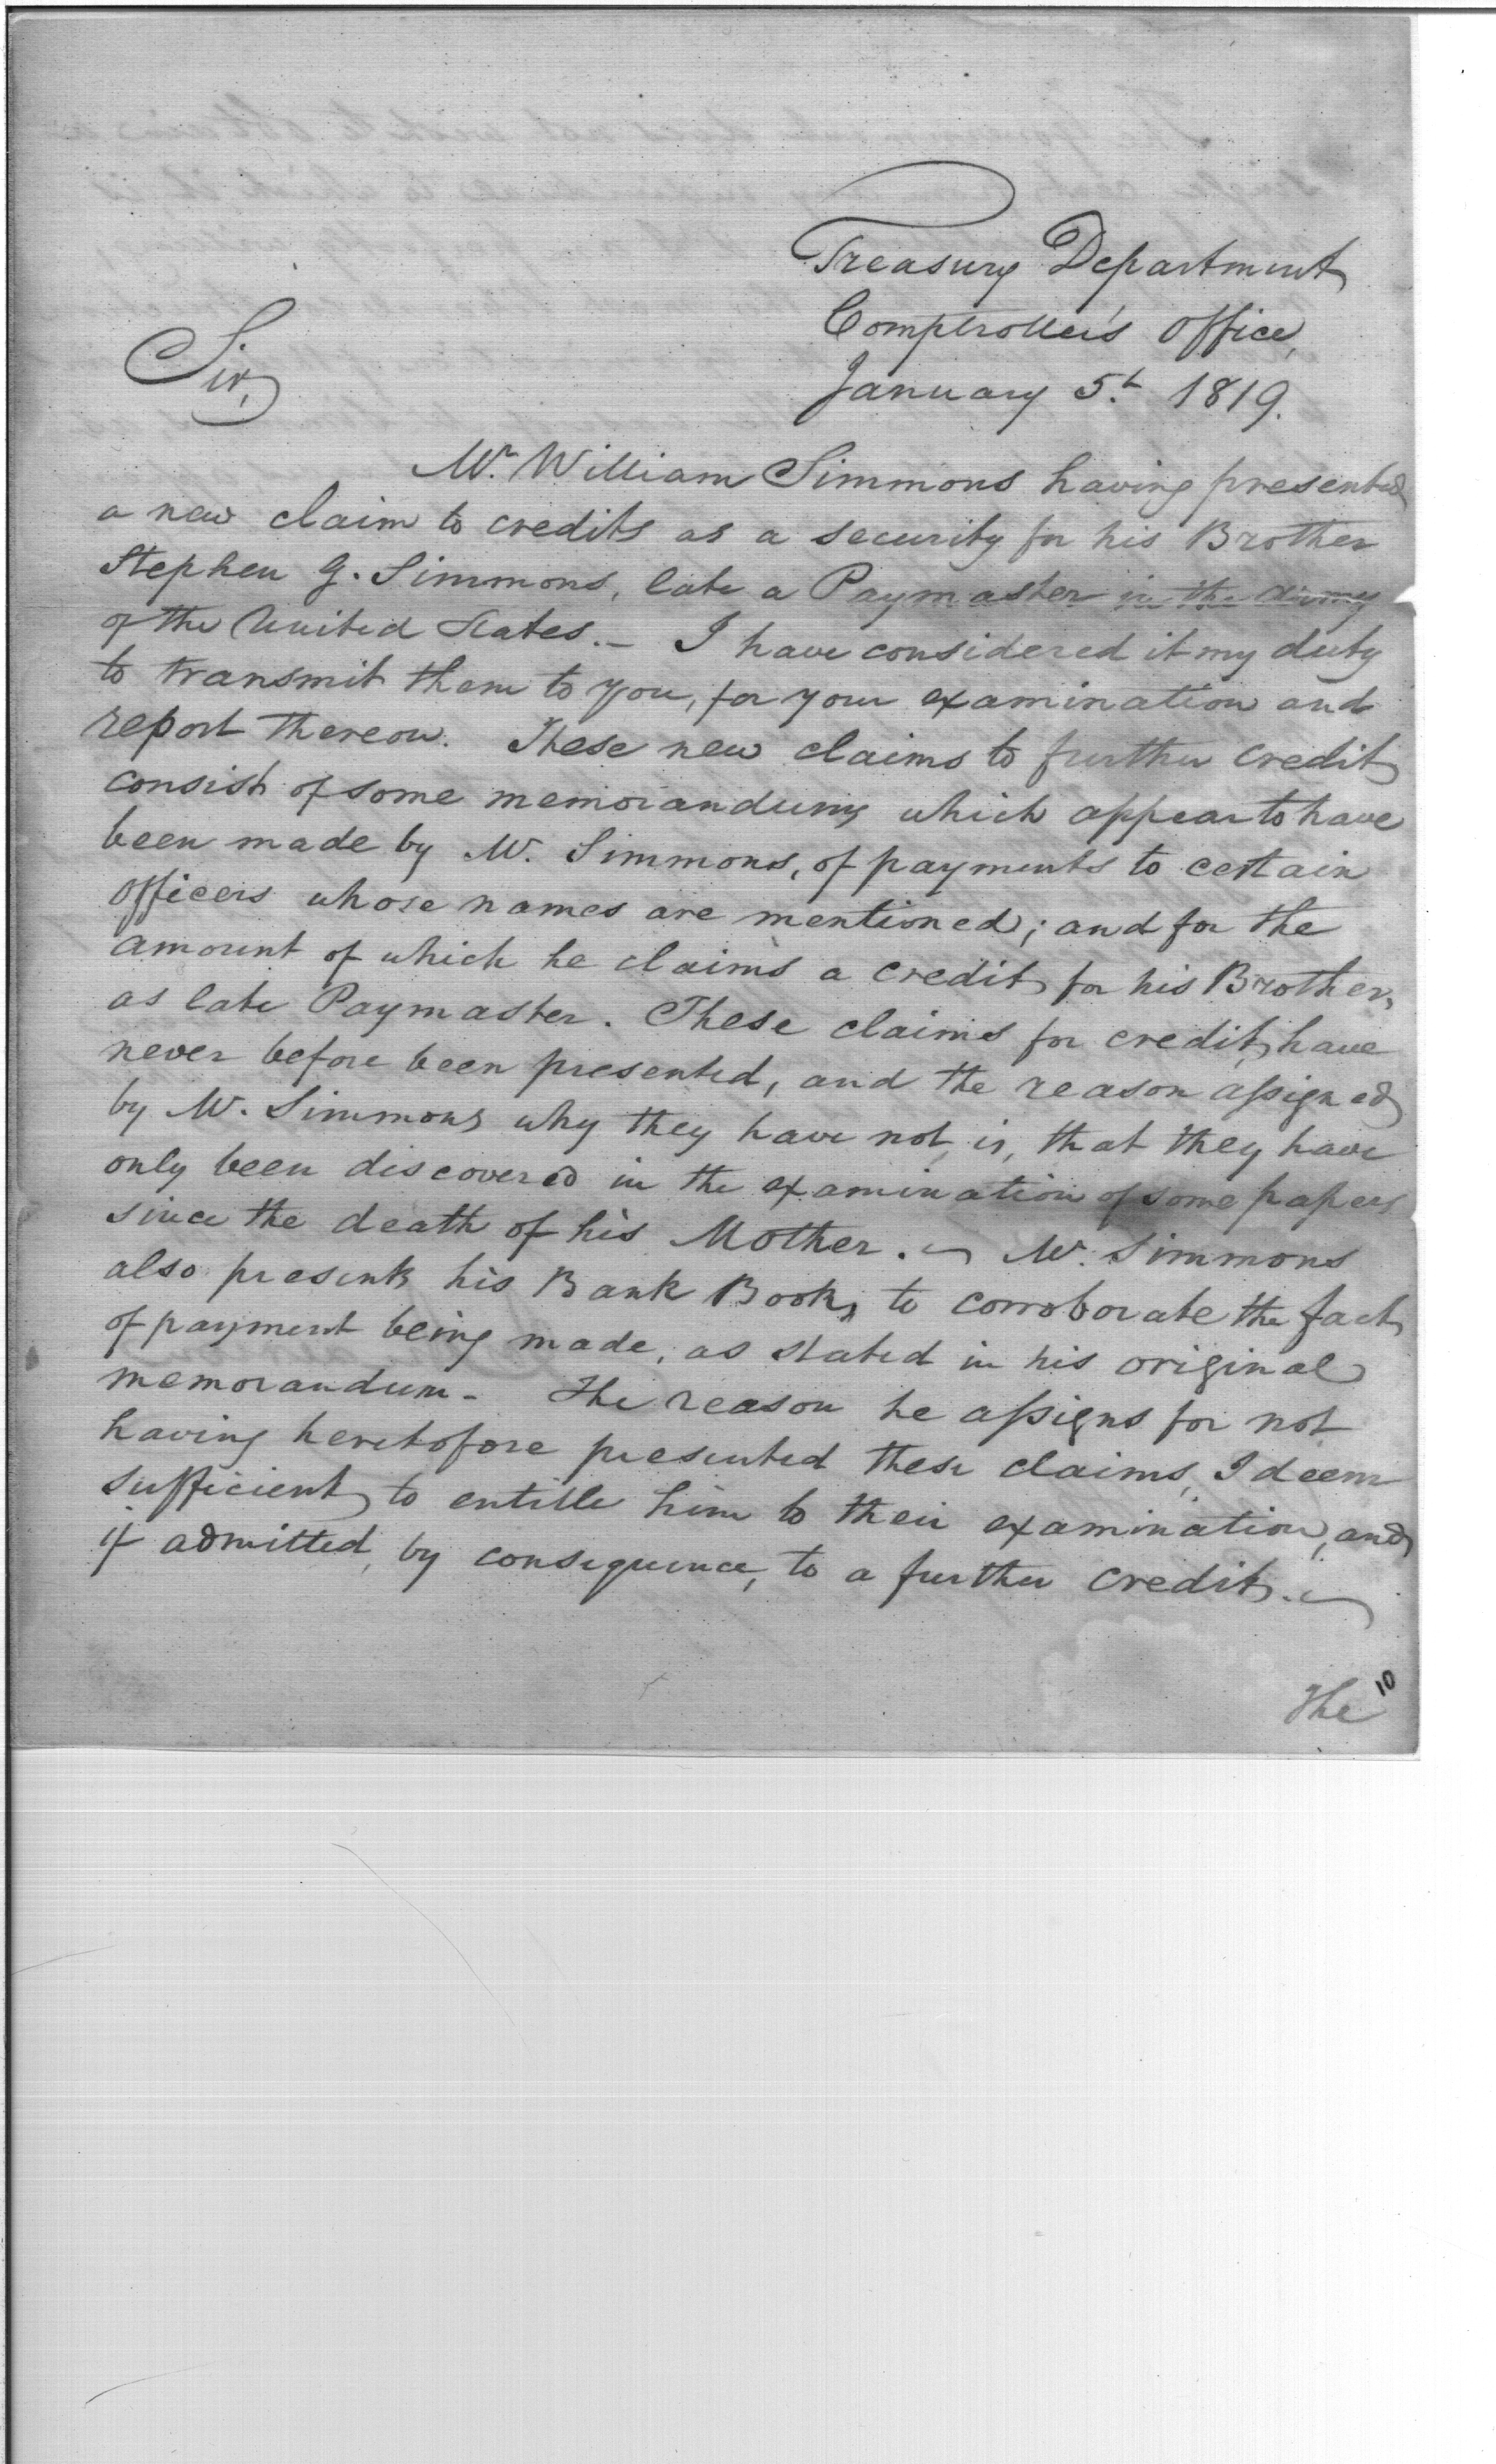 Treasury Department
Comptroller's Office,
January 5.t 1819.
Sir,
Mr. William Simmons having presented
a new claim to credits as a security for his Brother
Stephen G. Simmons, late a Paymaster in the Army
of the United States. — I have considered it my duty
to transmit them to you, for your examination and
report thereon. These new claims to further credit
consist of some memorandums which appear to have
been made by Mr. Simmons, of payments to certain
officers whose names are mentioned; and for the
amount of which he claims a credit for his Brother,
as late Paymaster. These claims for credit, have
never before been presented, and the reason assigned
by Mr. Simmons why they have not, is, that they have
only been discovered in the examination of some papers
since the death of his Mother. — Mr. Simmons
also presents his Bank Book, to corroborate the fact,
of payment being made, as stated in his original
memorandum - The reason he assigns for not
having heretofore presented these claims, I deem
sufficient, to entitle him to their examination, and
if admitted, by consequence, to a further credit. —
The
10